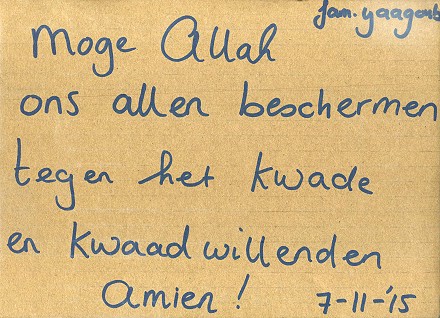 fam. yaagoub
Moge Allah
ons allen beschermen
tegen het kwade
en kwaadwillenden
Amien!
7-11-'15